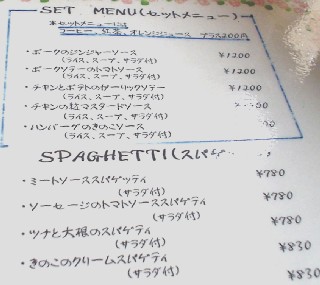 SET MENU(セットメニュー)
本セットメニューには
コーヒー、紅茶、オレンジジュース プラス200円
・ポークのジンジャーソース ¥1200
(ライス、スープ、サラダ付)
・ポークソテーのトマトソース ¥1200
(ライス、スープ、サラダ付)
・チキンとポテトのガーリックソテー ¥1200
(ライス、スープ、サラダ付)
・チキンの粒マスタードソース
(ライス、スープ、サラダ付)
・ハンバーグのきのこソース
(ライス、スープ、サラダ付)
SPAGHETTI(スパゲ
・ミートソーススパゲッティ ¥780
(サラダ付)
・ソーセージのトマトソーススパゲティ ¥780
(サラダ付)
・ツナと大根のスパゲティ ¥780
(サラダ付)
・きのこのクリームスパゲティ ¥830
(サラダ付)
¥830